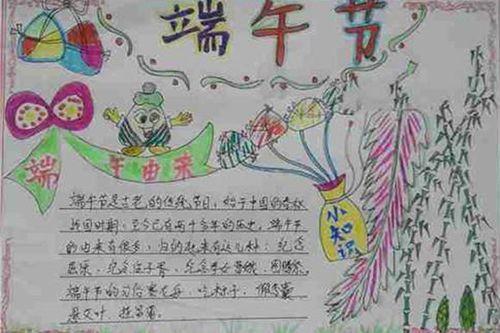 端午节
端午由来
小知识
端午节是古老的传统节日，始于中国的春秋
战国时期，至今已有两千多年的历史，端午节
的由来有很多，归纳起来有这几种：纪念
屈原，纪念伍子胥，纪念孝女曹娥，
端午节的习俗赛龙舟，吃粽子，佩香囊
悬艾叶，挂菖蒲。